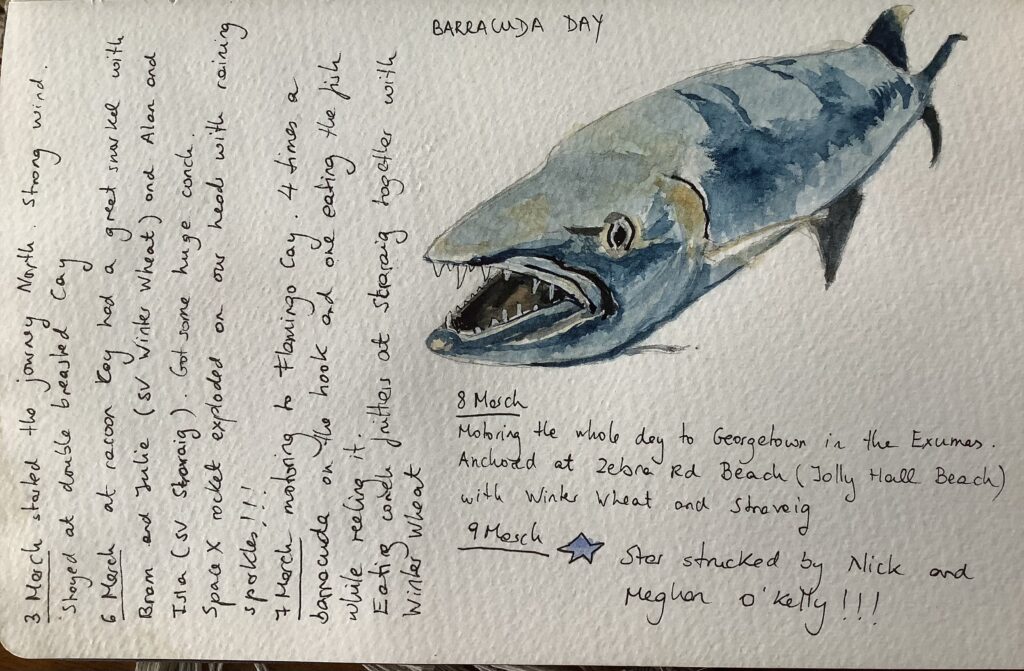 BARRACUDA DAY
3 March started the journey North. Strong wind.
Stayed at double breasted Cay
6 March at racoon Kay had a great snorkel with
Bram and Julie (SV Winter Wheat) and Alan and
Isla (SV Stravaig). Got some huge conch.
Space X rocket exploded on our heads with raining
sparkles!!!
7 March motoring to Flamingo Cay. 4 times a
barracuda on the hook and one eating the fish
while reeling it.
Eating conch fritters at Stravaig together with
Winter Wheat
8 March
Motoring the whole day to Georgetown in the Exumas.
Anchored at Zebra Rd Beach (Jolly Hall Beach)
with Winter Wheat and Stravaig
9 March
Star strucked by Nick and
Meghan O'Kelly!!!